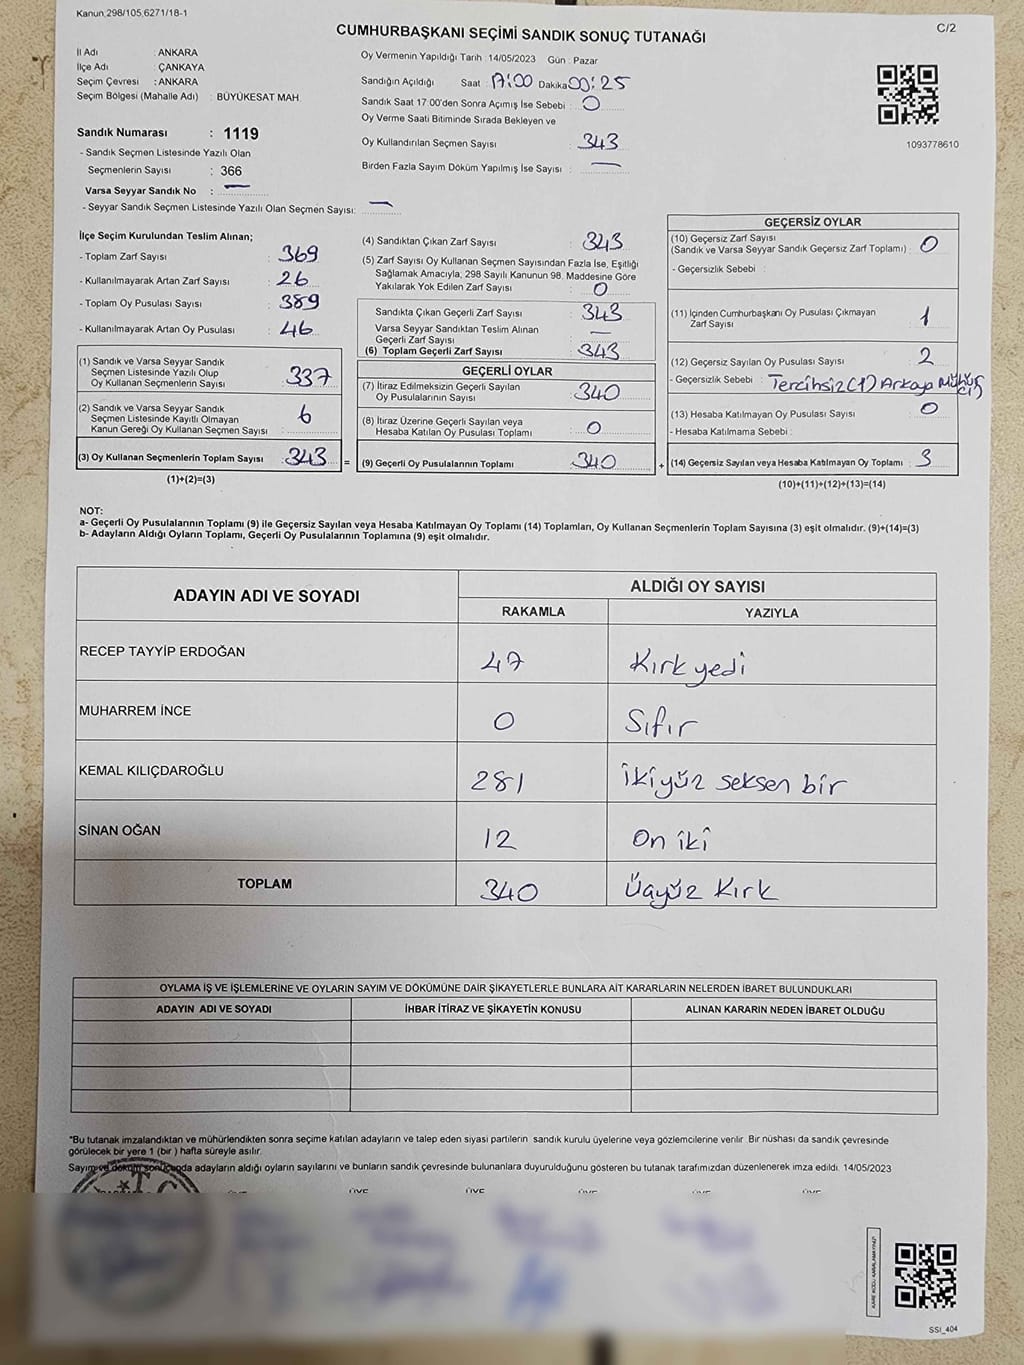 Kanun 298/105,6271/18-1
C/2
CUMHURBAŞKANI SEÇİMİ SANDIK SONUÇ TUTANAĞI
İl Adı : ANKARA
İlçe Adı : ÇANKAYA
Seçim Çevresi : ANKARA
Seçim Bölgesi (Mahalle Adı) : BÜYÜKESAT MAH.
Sandık Numarası : 1119
- Sandık Seçmen Listesinde Yazılı Olan
Seçmenlerin Sayısı : 366
Varsa Seyyar Sandık No : —
- Seyyar Sandık Seçmen Listesinde Yazılı Olan Seçmen Sayısı: —
Oy Vermenin Yapıldığı Tarih : 14/05/2023 Gün : Pazar
Sandığın Açıldığı Saat : 17:00 Dakika 00:25
Sandık Saat 17.00'den Sonra Açımış İse Sebebi : 0
Oy Verme Saati Bitiminde Sırada Bekleyen ve
Oy Kullandırılan Seçmen Sayısı : 343
Birden Fazla Sayım Döküm Yapılmış İse Sayısı : —
1093778610
İlçe Seçim Kurulundan Teslim Alınan;
- Toplam Zarf Sayısı : 369
- Kullanılmayarak Artan Zarf Sayısı : 26
- Toplam Oy Pusulası Sayısı : 389
- Kullanılmayarak Artan Oy Pusulası : 46
(1) Sandık ve Varsa Seyyar Sandık
Seçmen Listesinde Yazılı Olup
Oy Kullanan Seçmenlerin Sayısı : 337
(2) Sandık ve Varsa Seyyar Sandık
Seçmen Listesinde Kayıtlı Olmayan
Kanun Gereği Oy Kullanan Seçmen Sayısı : 6
(3) Oy Kullanan Seçmenlerin Toplam Sayısı : 343 =
(1)+(2)=(3)
(4) Sandıktan Çıkan Zarf Sayısı : 343
(5) Zarf Sayısı Oy Kullanan Seçmen Sayısından Fazla İse, Eşitliği
Sağlamak Amacıyla, 298 Sayılı Kanunun 98. Maddesine Göre
Yakılarak Yok Edilen Zarf Sayısı : 0
Sandıkta Çıkan Geçerli Zarf Sayısı : 343
Varsa Seyyar Sandıktan Teslim Alınan
Geçerli Zarf Sayısı : —
(6) Toplam Geçerli Zarf Sayısı : 343
GEÇERLİ OYLAR
(7) İtiraz Edilmeksizin Geçerli Sayılan
Oy Pusulalarının Sayısı : 340
(8) İtiraz Üzerine Geçerli Sayılan veya
Hesaba Katılan Oy Pusulası Toplamı : 0
(9) Geçerli Oy Pusulalarının Toplamı : 340 +
GEÇERSİZ OYLAR
(10) Geçersiz Zarf Sayısı
(Sandık ve Varsa Seyyar Sandık Geçersiz Zarf Toplamı) : 0
- Geçersizlik Sebebi :
(11) İçinden Cumhurbaşkanı Oy Pusulası Çıkmayan
Zarf Sayısı : 1
(12) Geçersiz Sayılan Oy Pusulası Sayısı : 2
- Geçersizlik Sebebi : Tercihsiz(1) Arkaya Mühür
(1)
(13) Hesaba Katılmayan Oy Pusulası Sayısı : 0
- Hesaba Katılmama Sebebi :
(14) Geçersiz Sayılan veya Hesaba Katılmayan Oy Toplamı : 3
(10)+(11)+(12)+(13)=(14)
NOT:
a- Geçerli Oy Pusulalarının Toplamı (9) ile Geçersiz Sayılan veya Hesaba Katılmayan Oy Toplamı (14) Toplamları, Oy Kullanan Seçmenlerin Toplam Sayısına (3) eşit olmalıdır. (9)+(14)=(3)
b- Adayların Aldığı Oyların Toplamı, Geçerli Oy Pusulalarının Toplamına (9) eşit olmalıdır.
ADAYIN ADI VE SOYADI
ALDIĞI OY SAYISI
RAKAMLA YAZIYLA
RECEP TAYYİP ERDOĞAN 47 Kırk yedi
MUHARREM İNCE 0 Sıfır
KEMAL KILIÇDAROĞLU 281 İkiyüz seksen bir
SİNAN OĞAN 12 On iki
TOPLAM 340 Üçyüz Kırk
OYLAMA İŞ VE İŞLEMLERİNE VE OYLARIN SAYIM VE DÖKÜMÜNE DAİR ŞİKAYETLERLE BUNLARA AİT KARARLARIN NELERDEN İBARET BULUNDUKLARI
ADAYIN ADI VE SOYADI İHBAR İTİRAZ VE ŞİKAYETİN KONUSU ALINAN KARARIN NEDEN İBARET OLDUĞU
*Bu tutanak imzalandıktan ve mühürlendikten sonra seçime katılan adayların ve talep eden siyasi partilerin sandık kurulu üyelerine veya gözlemcilerine verilir. Bir nüshası da sandık çevresinde
görülecek bir yere 1 (bir ) hafta süreyle asılır.
Sayım ve döküm sonucunda adayların aldığı oyların sayılarını ve bunların sandık çevresinde bulunanlara duyurulduğunu gösteren bu tutanak tarafımızdan düzenlenerek imza edildi. 14/05/2023
T.C.
ÜYE ÜYE ÜYE ÜYE ÜYE ÜYE
SSI_404